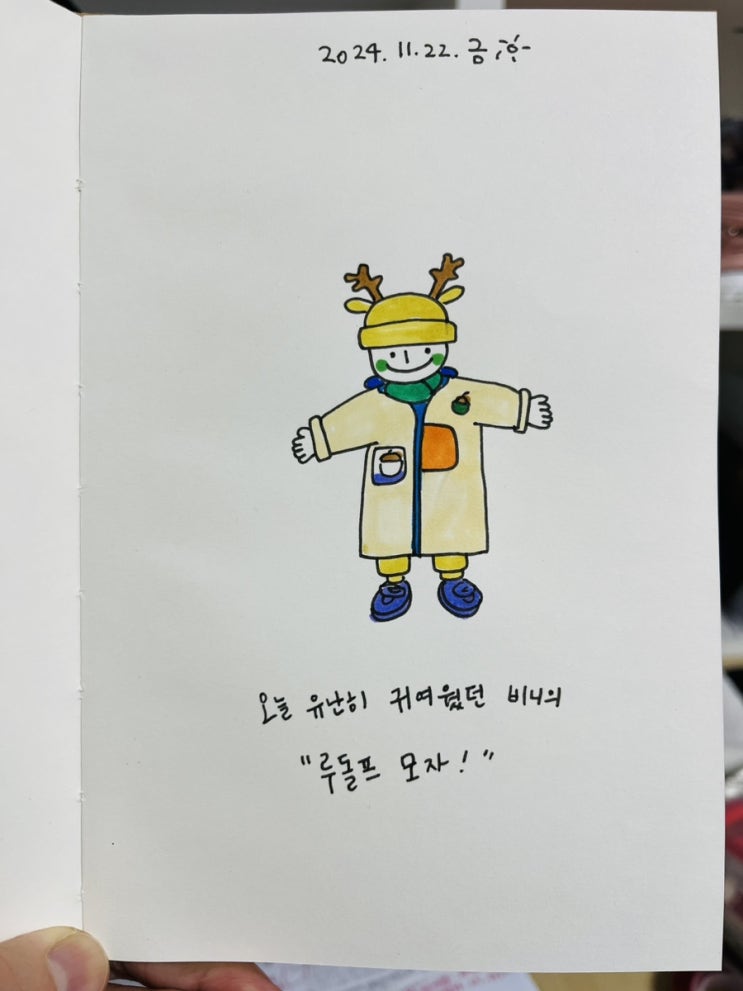 2024.11.22.금
오늘 유난히 귀여웠던 비니의
"루돌프 모자!"